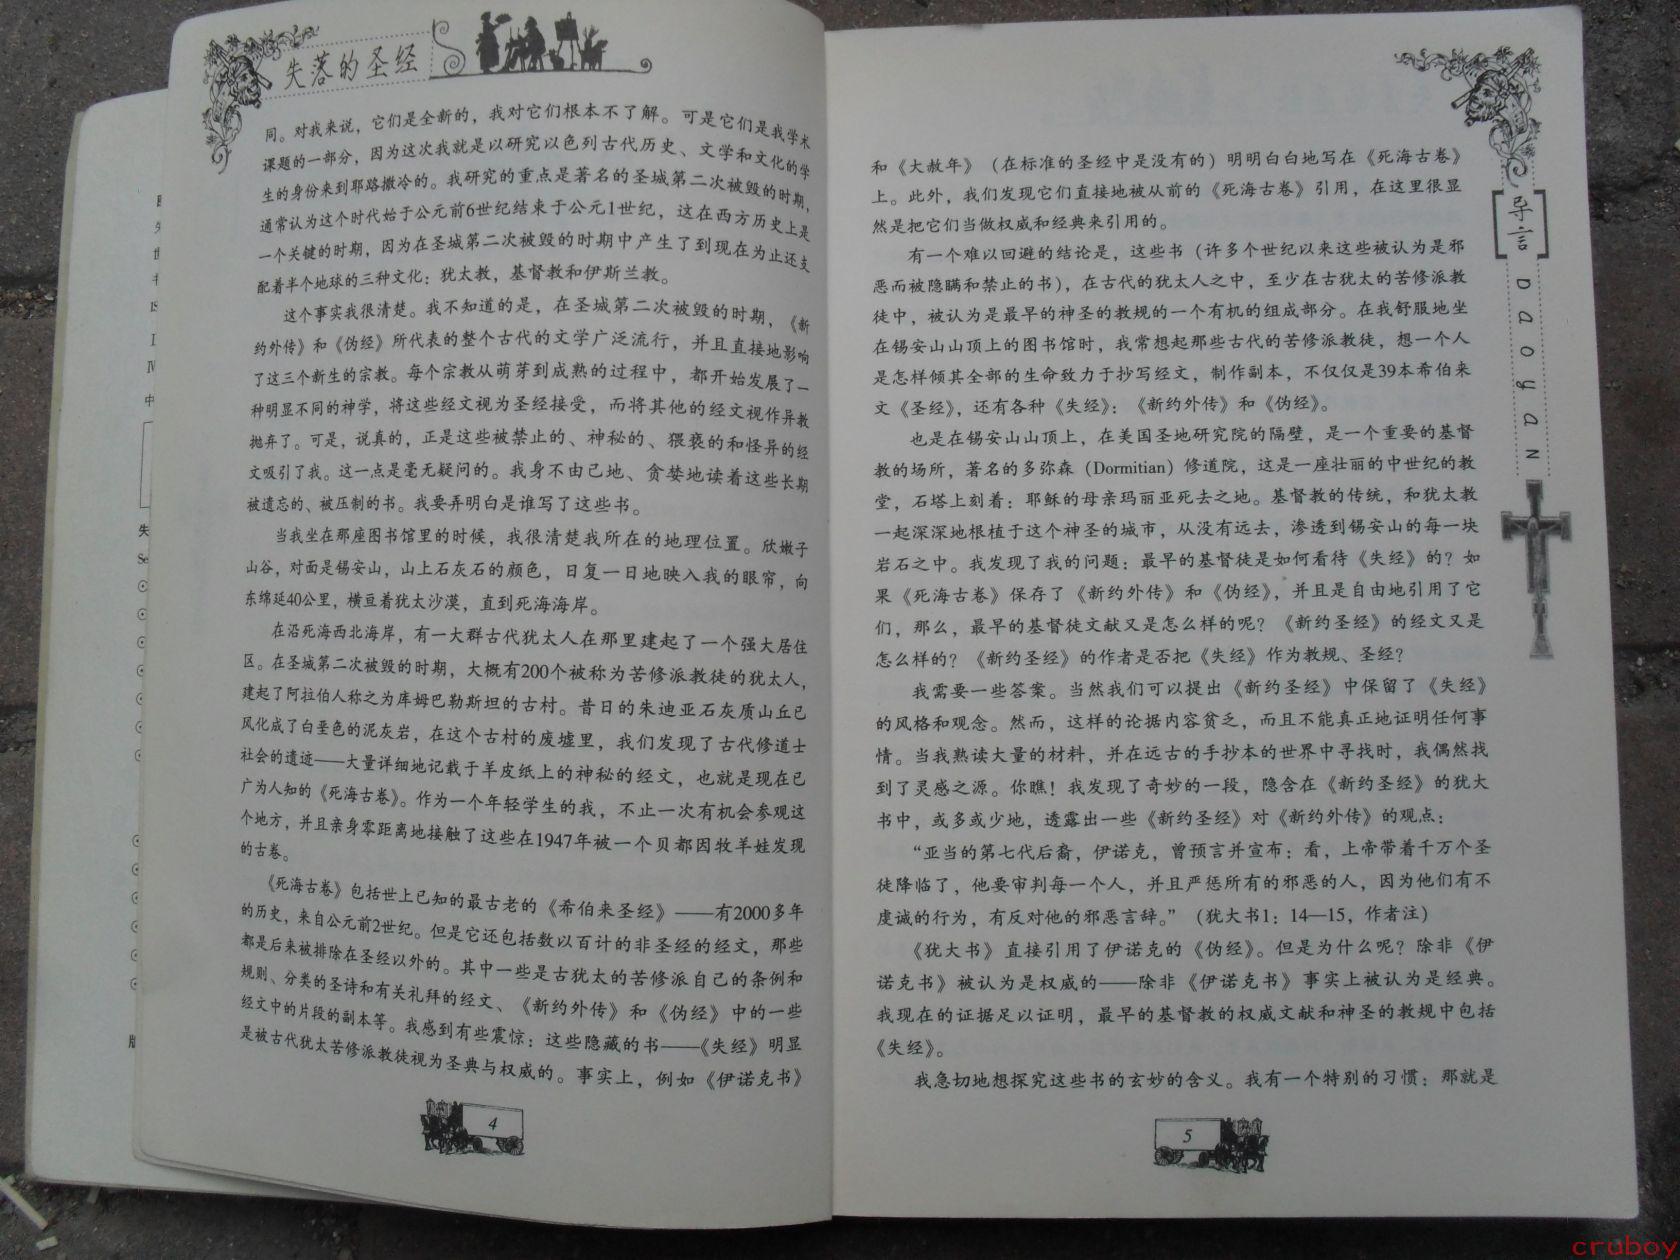 失落的圣经
同。对我来说，它们是全新的，我对它们根本不了解。可是它们是我学术
课题的一部分，因为这次我就是以研究以色列古代历史、文学和文化的学
生的身份来到耶路撒冷的。我研究的重点是著名的圣城第二次被毁的时期，
通常认为这个时代始于公元前6世纪结束于公元1世纪，这在西方历史上是
一个关键的时期，因为在圣城第二次被毁的时期中产生了到现在为止还支
配着半个地球的三种文化：犹太教，基督教和伊斯兰教。
这个事实我很清楚。我不知道的是，在圣城第二次被毁的时期，《新
约外传》和《伪经》所代表的整个古代的文学广泛流行，并且直接地影响
了这三个新生的宗教。每个宗教从萌芽到成熟的过程中，都开始发展了一
种明显不同的神学，将这些经文视为圣经接受，而将其他的经文视作异教
抛弃了。可是，说真的，正是这些被禁止的、神秘的、猥亵的和怪异的经
文吸引了我。这一点是毫无疑问的。我身不由己地、贪婪地读着这些长期
被遗忘的、被压制的书。我要弄明白是谁写了这些书。
当我坐在那座图书馆里的时候，我很清楚我所在的地理位置。欣嫩子
山谷，对面是锡安山，山上石灰石的颜色，日复一日地映入我的眼帘，向
东绵延40公里，横亘着犹太沙漠，直到死海海岸。
在沿死海西北海岸，有一大群古代犹太人在那里建起了一个强大居住
区。在圣城第二次被毁的时期，大概有200个被称为苦修派教徒的犹太人，
建起了阿拉伯人称之为库姆巴勒斯坦的古村。昔日的朱迪亚石灰质山丘已
风化成了白垩色的泥灰岩，在这个古村的废墟里，我们发现了古代修道士
社会的遗迹——大量详细地记载于羊皮纸上的神秘的经文，也就是现在已
广为人知的《死海古卷》。作为一个年轻学生的我，不止一次有机会参观这
个地方，并且亲身零距离地接触了这些在1947年被一个贝都因牧羊娃发现
的古卷。
《死海古卷》包括世上已知的最古老的《希伯来圣经》——有2000多年
的历史，来自公元前2世纪。但是它还包括数以百计的非圣经的经文，那些
都是后来被排除在圣经以外的。其中一些是古犹太的苦修派自己的条例和
规则、分类的圣诗和有关礼拜的经文、《新约外传》和《伪经》中的一些
经文中的片段的副本等。我感到有些震惊：这些隐藏的书——《失经》明显
是被古代犹太苦修派教徒视为圣典与权威的。事实上，例如《伊诺克书》
4
和《大赦年》（在标准的圣经中是没有的）明明白白地写在《死海古卷》
上。此外，我们发现它们直接地被从前的《死海古卷》引用，在这里很显
然是把它们当做权威和经典来引用的。
有一个难以回避的结论是，这些书（许多个世纪以来这些被认为是邪
恶而被隐瞒和禁止的书），在古代的犹太人之中，至少在古犹太的苦修派教
徒中，被认为是最早的神圣的教规的一个有机的组成部分。在我舒服地坐
在锡安山山顶上的图书馆时，我常想起那些古代的苦修派教徒，想一个人
是怎样倾其全部的生命致力于抄写经文，制作副本，不仅仅是39本希伯来
文《圣经》，还有各种《失经》：《新约外传》和《伪经》。
也是在锡安山山顶上，在美国圣地研究院的隔壁，是一个重要的基督
教的场所，著名的多弥森（Dormitian）修道院，这是一座壮丽的中世纪的教
堂，石塔上刻着：耶稣的母亲玛丽亚死去之地。基督教的传统，和犹太教
一起深深地根植于这个神圣的城市，从没有远去，渗透到锡安山的每一块
岩石之中。我发现了我的问题：最早的基督徒是如何看待《失经》的？如
果《死海古卷》保存了《新约外传》和《伪经》，并且是自由地引用了它
们，那么，最早的基督徒文献又是怎么样的呢？《新约圣经》的经文又是
怎么样的？《新约圣经》的作者是否把《失经》作为教规、圣经？
我需要一些答案。当然我们可以提出《新约圣经》中保留了《失经》
的风格和观念。然而，这样的论据内容贫乏，而且不能真正地证明任何事
情。当我熟读大量的材料，并在远古的手抄本的世界中寻找时，我偶然找
到了灵感之源。你瞧！我发现了奇妙的一段，隐含在《新约圣经》的犹大
书中，或多或少地，透露出一些《新约圣经》对《新约外传》的观点：
“亚当的第七代后裔，伊诺克，曾预言并宣布：看，上帝带着千万个圣
徒降临了，他要审判每一个人，并且严惩所有的邪恶的人，因为他们有不
虔诚的行为，有反对他的邪恶言辞。”（犹大书1：14—15，作者注）
《犹大书》直接引用了伊诺克的《伪经》。但是为什么呢？除非《伊
诺克书》被认为是权威的——除非《伊诺克书》事实上被认为是经典。
我现在的证据足以证明，最早的基督教的权威文献和神圣的教规中包括
《失经》。
我急切地想探究这些书的玄妙的含义。我有一个特别的习惯：那就是
5
导言
DaoyaN
cruboy